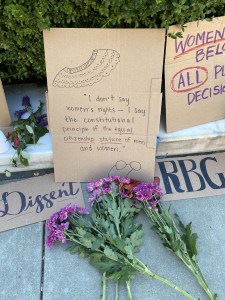 "I don't say
women's rights – I say
the constitutional
principle of the equal
citizenship stature of men
and women."
WOMEN
BEL
ALL PL
DECISI
Dissent
RBG